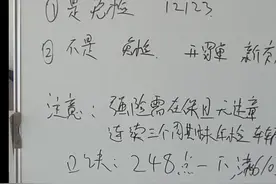 ① 是 免检 12123
② 不是 免检 新
注意: 强险需在保且无违章
连续三个周期未年检
口诀: 248点一不满610